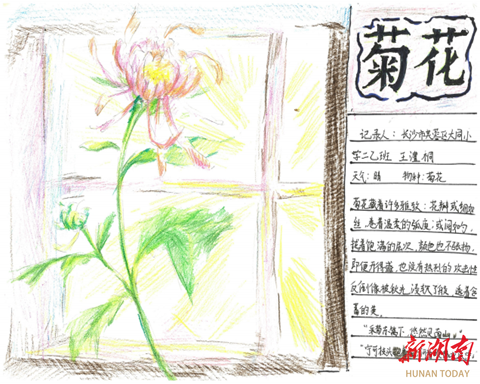 菊花
记录人：长沙市芙蓉区大同小
学二乙班 王澧桐
天气：晴 物种：菊花
菊花藏着许多雅致：花瓣或细如
丝，卷着温柔的弧度；或阔如勺，
托着饱满的层次，颜色也不张扬，
即便开得盛，也没有热烈的攻击性
反倒像被秋光浸软了般，透着含
蓄的美。
"采菊东篱下，悠然见南山。"
"宁可枝头抱香
新湖南
HUNAN TODAY